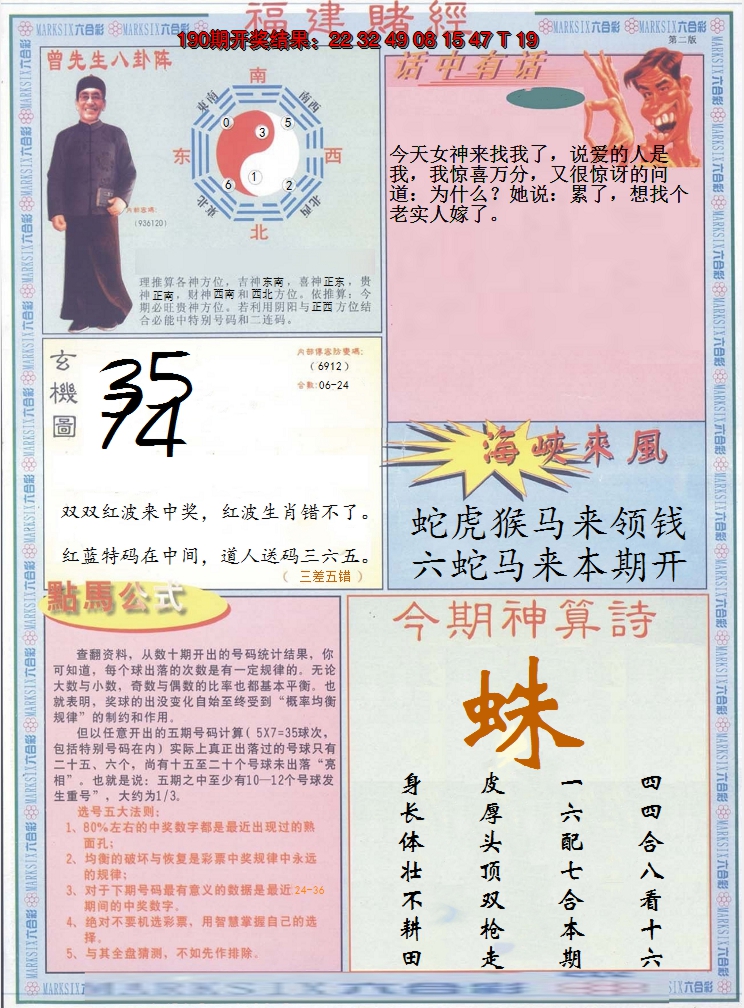 福建賭經
190期开奖结果：22 32 49 08 15 47 T 19
第二版
MARKSIX六合彩
曾先生八卦阵
南
东南
南西
0
3
5
东
西
6
1
2
東北
北西
北
內部密碼：
（936120）
理推算各神方位，吉神东南，喜神正东，贵
神正南，财神西南和西北方位。依推算：今
期必旺贵神方位。若利用阴阳与正西方位结
合必能中特别号码和二连码。
话中有话
今天女神来找我了，说爱的人是
我，我惊喜万分，又很惊讶的问
道：为什么？她说：累了，想找个
老实人嫁了。
玄機圖
35
74
內部傳密防變碼：
（6912）
合数：06-24
双双红波来中奖，红波生肖错不了。
红蓝特码在中间，道人送码三六五。
（ 三差五错 ）
海峽來風
蛇虎猴马来领钱
六蛇马来本期开
點馬公式
查翻资料，从数十期开出的号码统计结果，你
可知道，每个球出落的次数是有一定规律的。无论
大数与小数，奇数与偶数的比率也都基本平衡。也
就表明，奖球的出没变化自始至终受到“概率均衡
规律”的制约和作用。
但以任意开出的五期号码计算（5X7=35球次，
包括特别号码在内）实际上真正出落过的号球只有
二十五、六个，尚有十五至二十个号球未出落“亮
相”。也就是说：五期之中至少有10—12个号球发
生重号”，大约为1/3。
选号五大法则：
1、80%左右的中奖数字都是最近出现过的熟
面孔；
2、均衡的破坏与恢复是彩票中奖规律中永远
的规律；
3、对于下期号码最有意义的数据是最近24-36
期间的中奖数字。
4、绝对不要机选彩票，用智慧掌握自己的选
择。
5、与其全盘猜测，不如先作排除。
今期神算詩
蛛
身长体壮不耕田
皮厚头顶双枪走
一六配七合本期
四四合八看十六